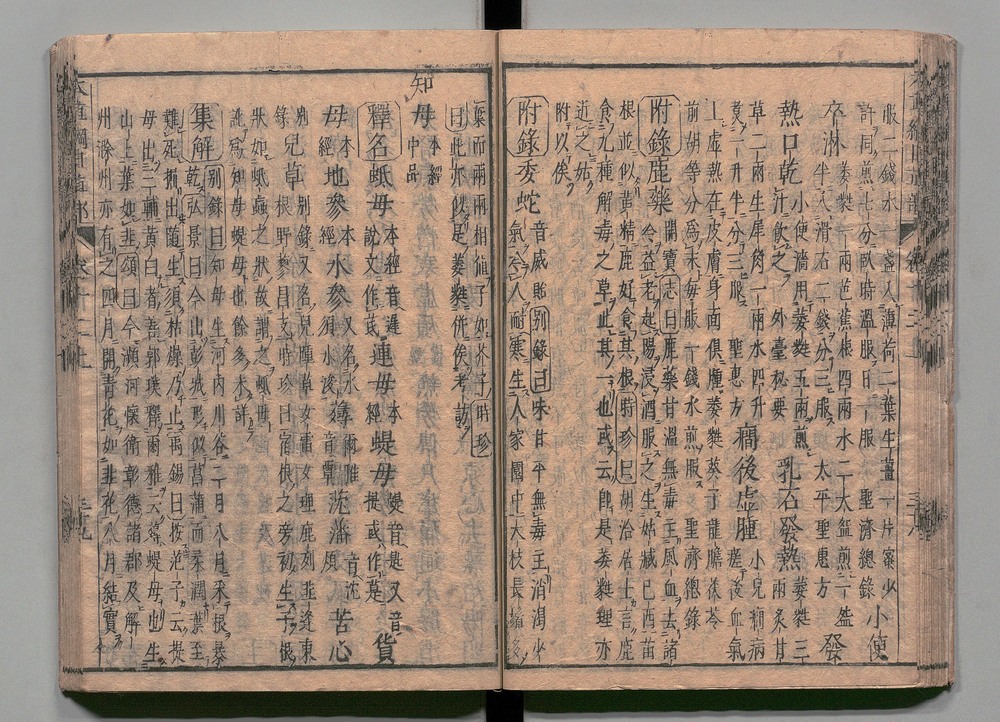 服二錢水一盞入薄荷二葉生薑一片蜜少
許同煎七分臥時溫服日一服　聖濟總錄　小便
卒淋　萎蕤一兩芭蕉根四兩水二大盌煎一盌半入滑石二錢分三服　太平聖惠方　發
熱口乾　小便澁用萎蕤五兩煎汁飲之　外臺秘要　乳石發熱　萎蕤三兩炙甘
草二兩生犀角一兩水四升煮一升半分三服　聖惠方　癎後虛腫　小兒癎病瘥後血氣
上虛熱在皮膚身面俱腫萎蕤葵子龍膽茯苓
前胡等分爲末每服一錢水煎服　聖濟總錄
附錄鹿藥　開寶　志曰鹿藥甘溫無毒主風血去諸冷益老起陽浸酒服之生姑臧已西苗
根並似黃精鹿好食其根　時珍曰胡洽居士言鹿
食九種解毒之草此其一也或云卽是萎蕤理亦
近之姑附以俟
附錄委蛇　音威貽　別錄曰味甘平無毒主消渴少氣令人耐寒生人家園中大枝長鬚多
葉而兩兩相值子如芥子　時珍曰此亦似是萎蕤併俟考訪
知母　本經中品
釋名　蚳母　本經音遲說文作芪　連母　本經　蝭母　蝭音匙又音提或作莐　貨
母　本經　地參　本經　水參　又名水須水浚　薚　爾雅音覃　沈藩　音沉煩　苦心
別錄　兒草　別錄又名兒踵草女雷女理鹿列韭逢東根野蓼昌支　時珍曰宿根之旁初生子根
狀如蚳蝱之狀故謂之蚳母
訛爲知母蝭母也餘多未詳
集解　別錄曰知母生河內川谷二月八月采根暴乾　弘景曰今出彭城形似菖蒲而柔潤葉至
難死掘出隨生須枯燥乃止　禹錫曰按范子云提
母出三輔黃白者善郭璞釋爾雅云薚蝭母也生
山上葉如韭　頌曰今瀕河懷衛彰德諸郡及解
州滁州亦有之四月開青花如韭花八月結實